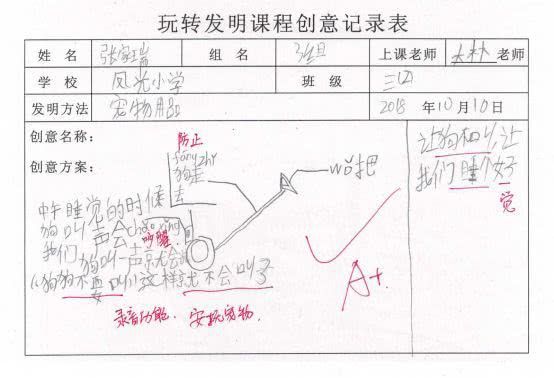 玩转发明课程创意记录表
姓 名 张家瑞 组 名 3组 上课老师 大朴老师
学 校 凤光小学 班 级 三(2)
发明方法 宠物用品 2018年10月10日
创意名称:
创意方案:
防止
fáng zhǐ
狗走
去
wǒ把
中午睡觉的时候
狗叫声会chǎo xǐng
吵醒.
我们 狗叫一声就会说
“狗狗不要叫”这样就不会叫了
录音功能. 安抚宠物.
A+.
让狗不叫,让
我们睡个好
觉